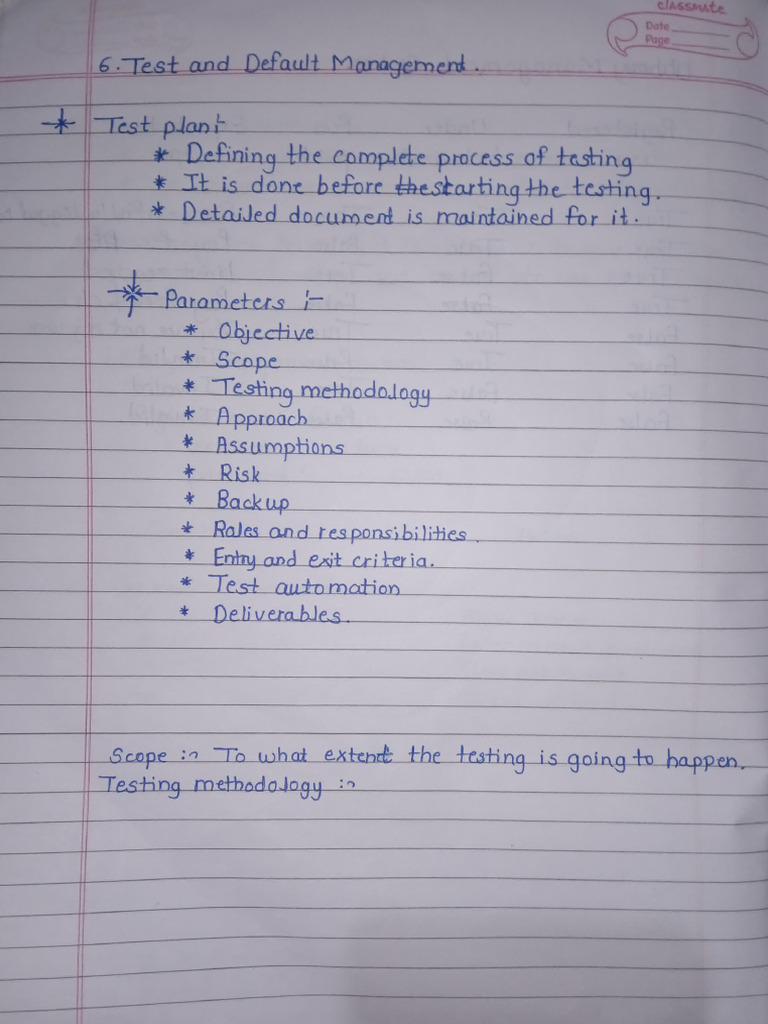 classmate
Date
Page
6. Test and Default Management.
Test plan :-
* Defining the complete process of testing
* It is done before the starting the testing.
* Detailed document is maintained for it.
Parameters :-
* Objective
* Scope
* Testing methodology
* Approach
* Assumptions
* Risk
* Backup
* Roles and responsibilities.
* Entry and exit criteria.
* Test automation
* Deliverables.
Scope :- To what extent the testing is going to happen.
Testing methodology :-